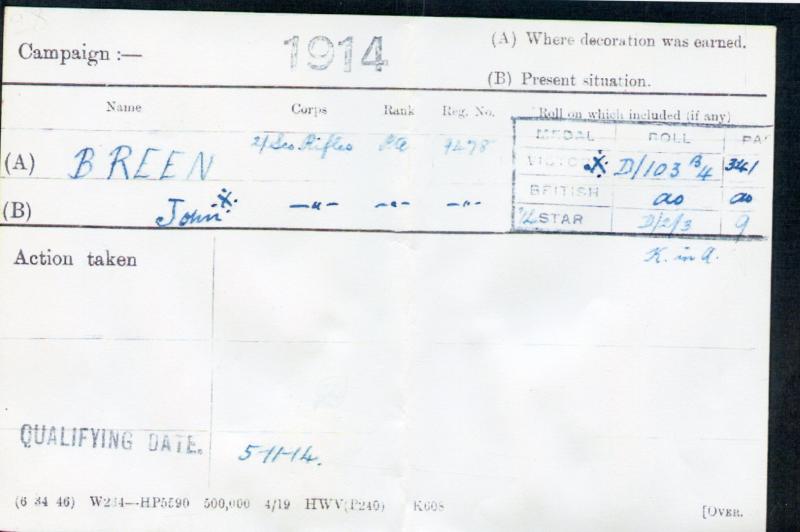 Campaign :— 1914 (A) Where decoration was earned.
(B) Present situation.
Name Corps Rank Reg. No. Roll on which included (if any)
MEDAL ROLL PA
(A) BREEN 2/Sco Rifles Pte 9478 VICTORY X D/103 B4 341
BRITISH do do
(B) John X —"— —"— —"— 14 STAR D/2/3 9
K. in A.
Action taken
QUALIFYING DATE. 5-11-14.
(6 34 46) W234—HP5590 500,000 4/19 HWV(P240) K608
[OVER.